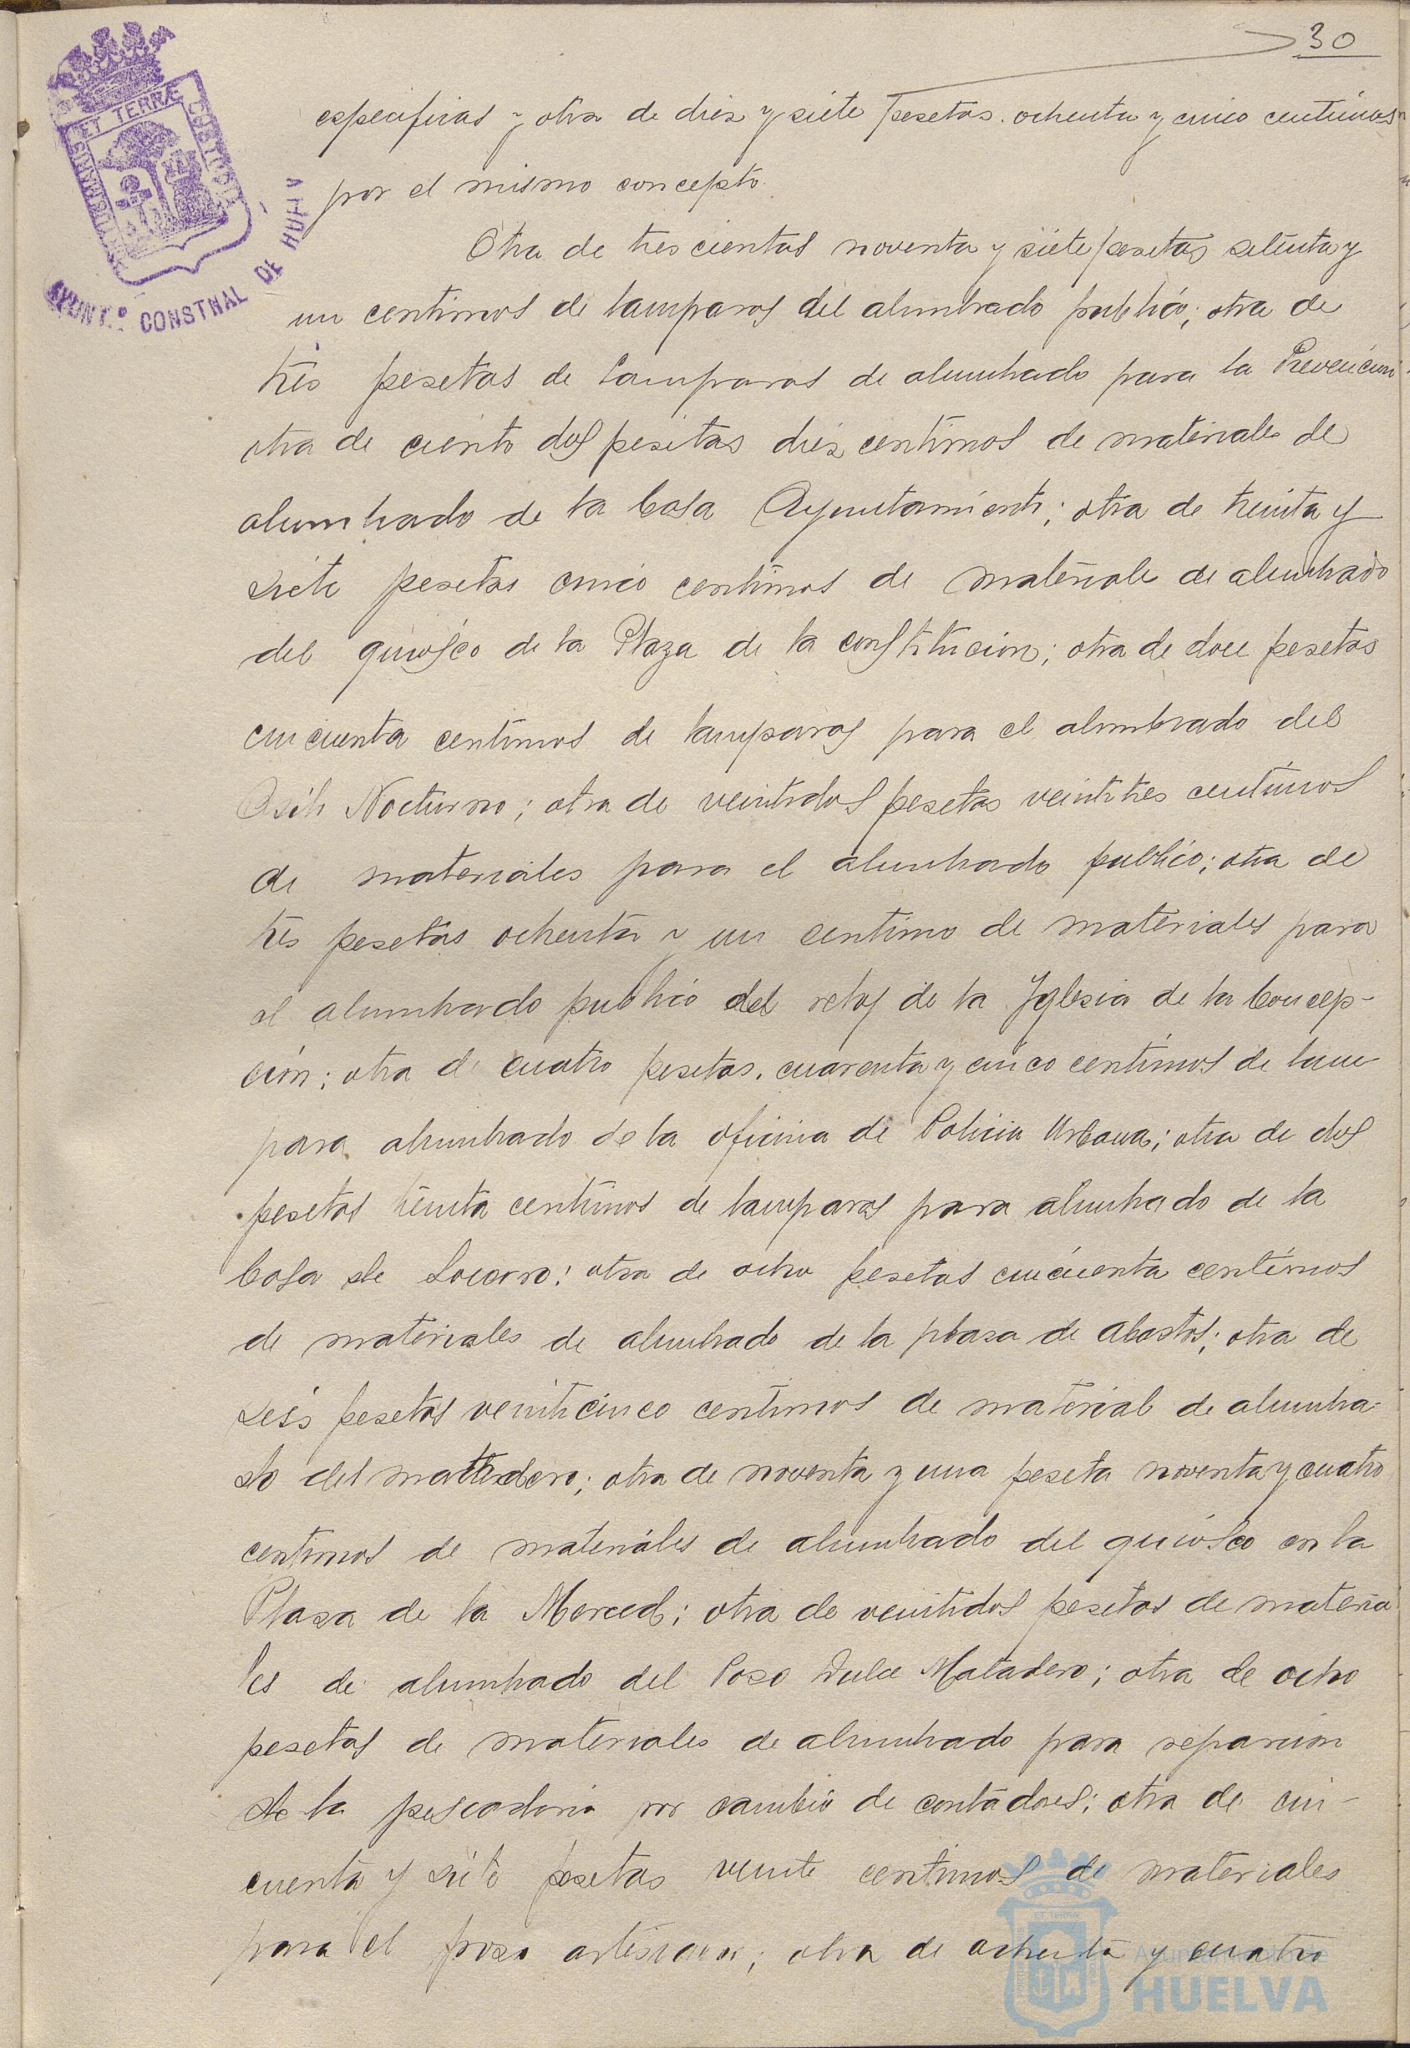 30
especificas y otra de diez y siete pesetas ochenta y cinco centimos
por el mismo concepto.
Otra de trescientas noventa y siete pesetas setenta y
un centimos de lamparas del alumbrado publico; otra de
tres pesetas de lamparas de alumbrado para la Prevencion
otra de ciento dos pesetas diez centimos de materiales de
alumbrado de la Casa Ayuntamiento; otra de treinta y
siete pesetas cinco centimos de materiales de alumbrado
del quiosco de la Plaza de la constitucion; otra de doce pesetas
cincuenta centimos de lamparas para el alumbrado del
Asilo Nocturno; otra de veintidos pesetas veintitres centimos
de materiales para el alumbrado publico; otra de
tres pesetas ochenta y un centimo de materiales para
el alumbrado publico del reloj de la Yglesia de la Concep-
ción; otra de cuatro pesetas cuarenta y cinco centimos de lam
para alumbrado de la oficina de Policia Urbana; otra de dos
pesetas treinta centimos de lamparas para alumbrado de la
Casa de Socorro; otra de ocho pesetas cincuenta centimos
de materiales de alumbrado de la plasa de abastos; otra de
seis pesetas veinticinco centimos de material de alumbra-
do del matadero; otra de noventa y una peseta noventa y cuatro
centimos de materiales de alumbrado del quiosco en la
Plasa de la Merced; otra de veintidos pesetas de materia
les de alumbrado del Poso Dulce Matadero; otra de ocho
pesetas de materiales de alumbrado para reparcion
de la pescaderia por cambio de contadores; otra de cin-
cuenta y siete pesetas veinte centimos de materiales
para el poso artesiano; otra de ochenta y cuatro
AYUNT.º CONSTNAL DE HUELVA
ET TERRÆ
CUSTODIA
Ayuntamiento de
HUELVA